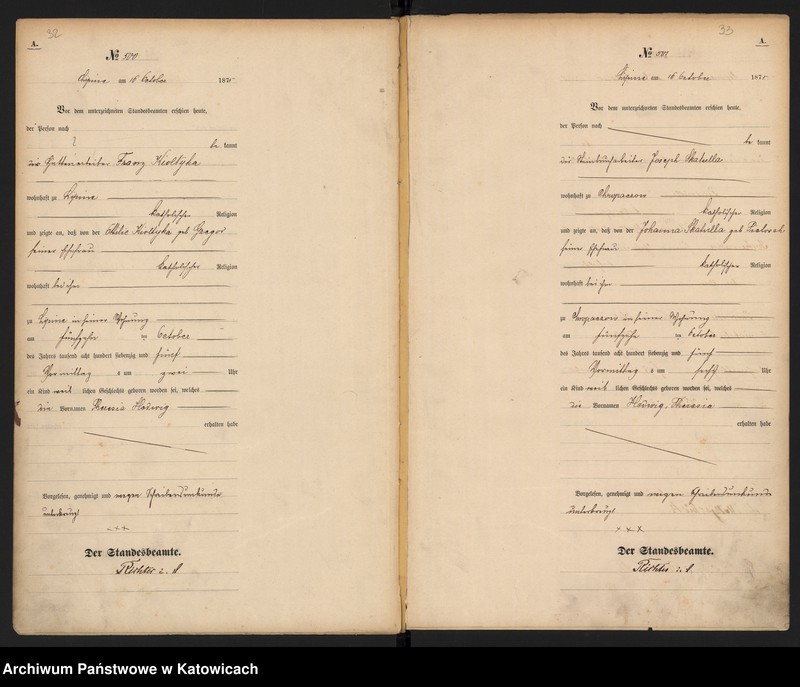 32
A.
№ 500
Lipine am 16 October 1875
Vor dem unterzeichneten Standesbeamten erschien heute,
der Person nach
be kannt
der Hüttenarbeiter Franz Kioltyka
wohnhaft zu Lipine
katholischer Religion
und zeigte an, daß von der Kioltyka geb Gregor
seiner Ehefrau
katholischer Religion
wohnhaft bei ihm
zu Lipine in seiner Wohnung
am fünfzehn ten October
des Jahres tausend acht hundert siebenzig und fünf
Vormittag s um zwei Uhr
ein Kind weib lichen Geschlechts geboren worden sei, welches
die Vornamen Theresia Hedwig
erhalten habe
Vorgelesen, genehmigt und wegen Schreibensunkunde
unterkreuzt
+++
Der Standesbeamte.
Richter i. V.
33
A.
№ 501
Lipine am 16 October 1875
Vor dem unterzeichneten Standesbeamten erschien heute,
der Person nach
be kannt
der Steinbrucharbeiter Joseph Skatulla
wohnhaft zu Chropaczow
katholischer Religion
und zeigte an, daß von der Johanna Skatulla geb
seiner Ehefrau
katholischer Religion
wohnhaft bei ihm
zu Chropaczow in seiner Wohnung
am fünfzehn ten October
des Jahres tausend acht hundert siebenzig und fünf
Vormittag s um sechs Uhr
ein Kind weib lichen Geschlechts geboren worden sei, welches
die Vornamen Hedwig, Theresia
erhalten habe
Vorgelesen, genehmigt und wegen Schreibensunkunde
unterkreuzt
+++
Der Standesbeamte.
Richter i. V.
Archiwum Państwowe w Katowicach